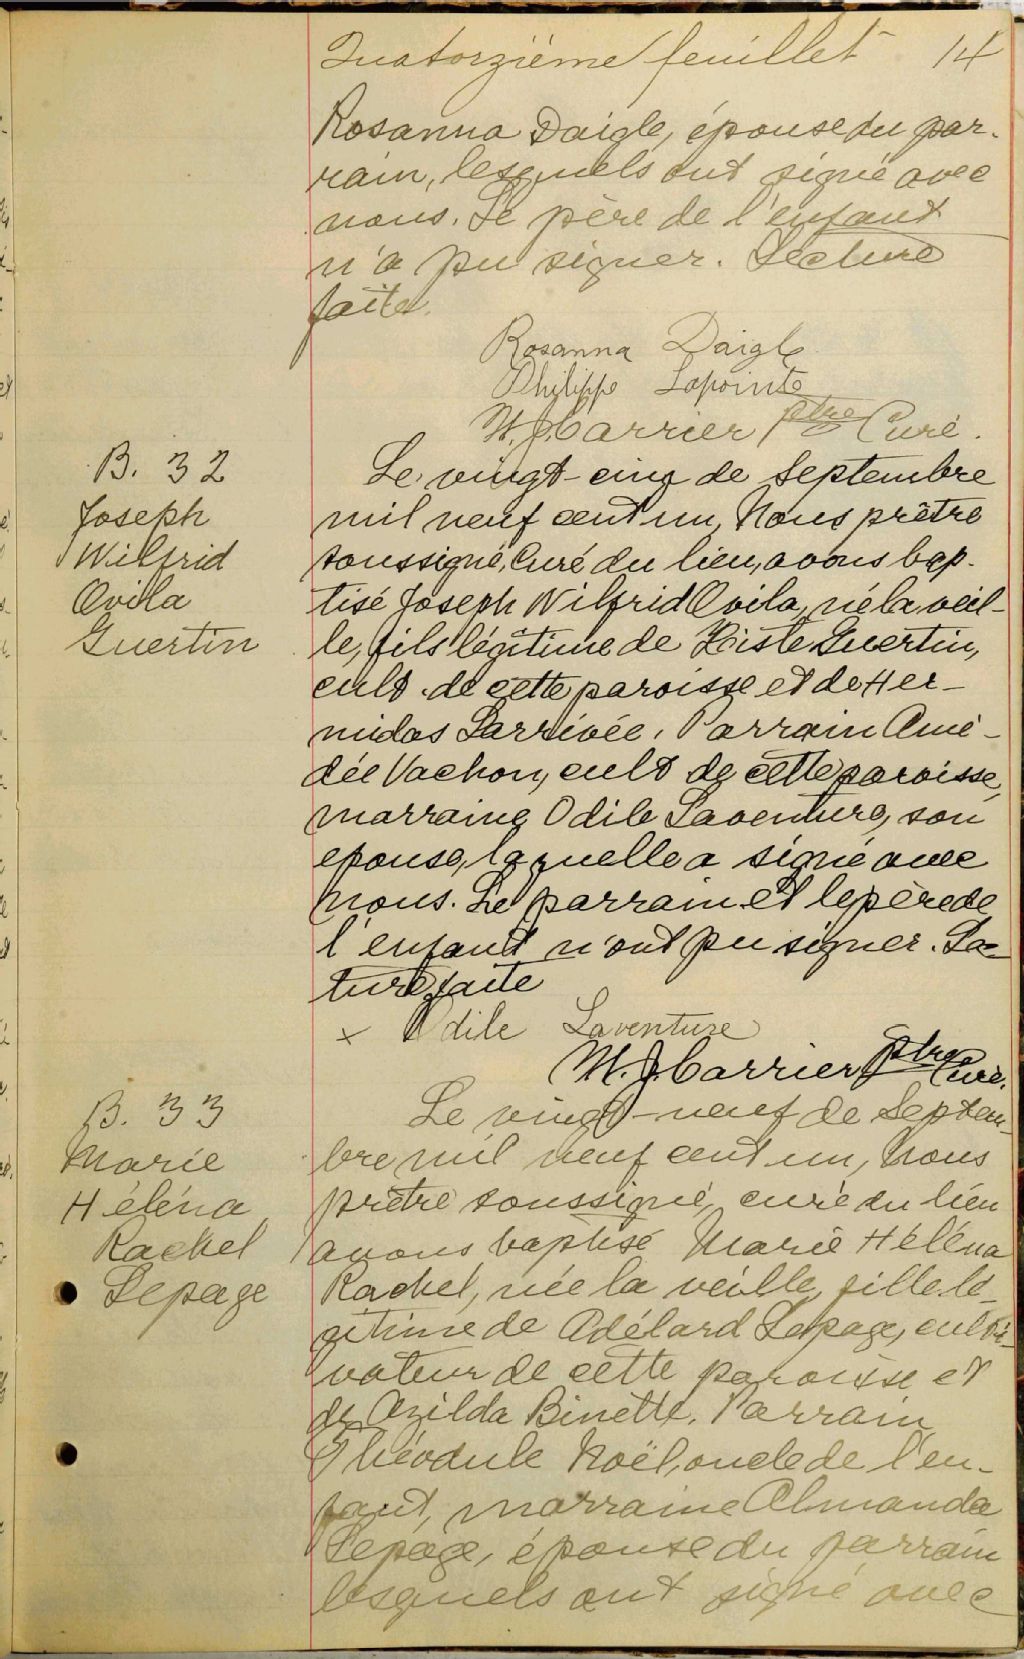 Quatorzième feuillet 14
Rosanna Daigle, épouse du par-
rain, lesquels ont signé avec
nous. Le père de l'enfant
n'a pu signer. Lecture
faite.
Rosanna Daigle
Philippe Lapointe
M. J. Carrier ptre Curé.
B. 32
Joseph
Wilfrid
Ovila
Guertin
Le vingt-cinq de Septembre
mil neuf cent un, Nous prêtre
soussigné, Curé du lieu, avons bap-
tisé Joseph Wilfrid Ovila, né la veil-
le, fils légitime de Guertin,
cult. de cette paroisse et de Her-
midas Larrivée. Parrain Amé-
dée Vachon, cult de cette paroisse,
marraine Odile Laventure, son
épouse, laquelle a signé avec
nous. Le parrain et le père de
l'enfant n'ont pu signer. Lec-
ture faite
x Odile Laventure
M. J. Carrier ptre Curé.
B. 33
Marie
Héléna
Rachel
Lepage
Le vingt-neuf de Septem-
bre mil neuf cent un, Nous
prêtre soussigné, curé du lieu
avons baptisé Marie Héléna
Rachel, née la veille, fille lé-
gitime de Adélard Lepage, culti-
vateur de cette paroisse et
de Azilda Binette. Parrain
Théodule Noël, oncle de l'en-
fant, marraine Almanda
Lepage, épouse du parrain
lesquels ont signé avec